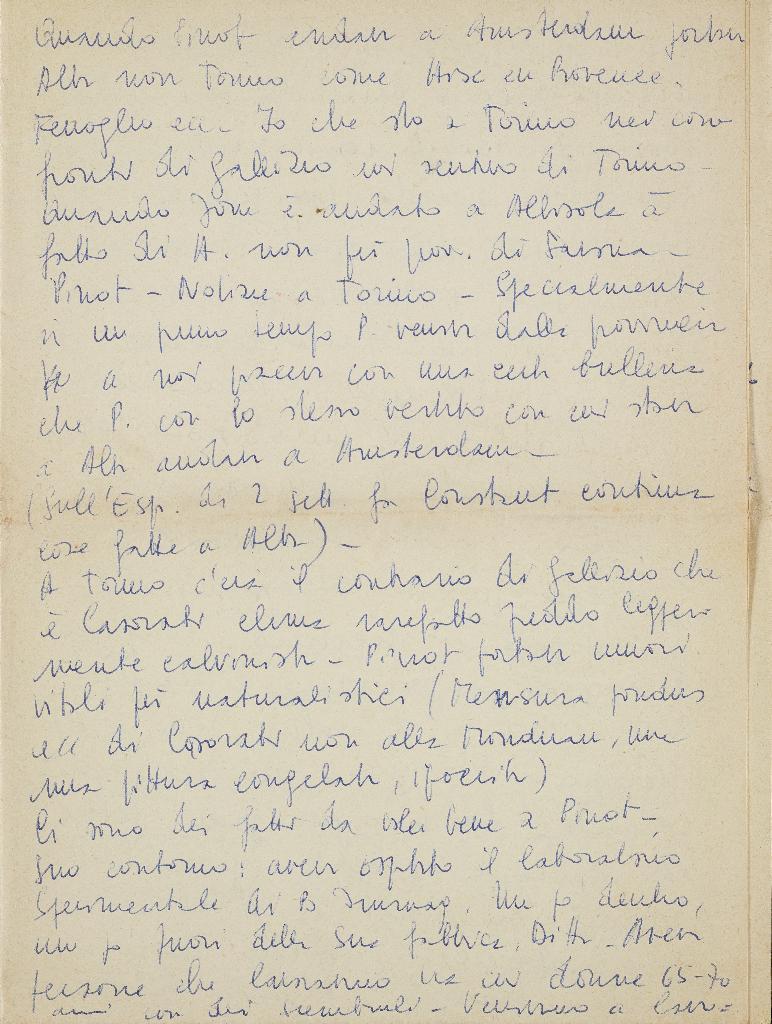 Quando Pinot andava a Amsterdam portava
Alba non Torino come Aix en Provence.
Fenoglio ecc. Io che sto a Torino nei con
fronti di Gallizio mi sentivo di Torino -
Quando Jorn è andato a Albisola à
fatto di A. non più prov. di Savona -
Pinot - Notizie a Torino - Specialmente
in un primo tempo P. veniva dalla provincia
a noi piaceva con una certa
che P. con lo stesso vestito con cui stava
a Alba andava a Amsterdam -
(Sull'Esp. di 2 sett. fa Constant continua
cose fatte a Alba) -
A Torino c'era il contrario di Gallizio che
è Casorati clima rarefatto freddo legger
mente calvinista - Pinot portava umori
vitali più naturalistici (
ecc di Casorati non alla Mondrian, ma
una pittura congelata, )
Ci sono dei fatti da voler bene a Pinot -
Suo contorno: aveva ospitato il laboratorio
Sperimentale di B Immag. Un po dentro,
un po fuori della sua fabbrica, Ditta - Aveva
persone che lavoravano tra cui donne 65-70
anni con dei - Venivano a